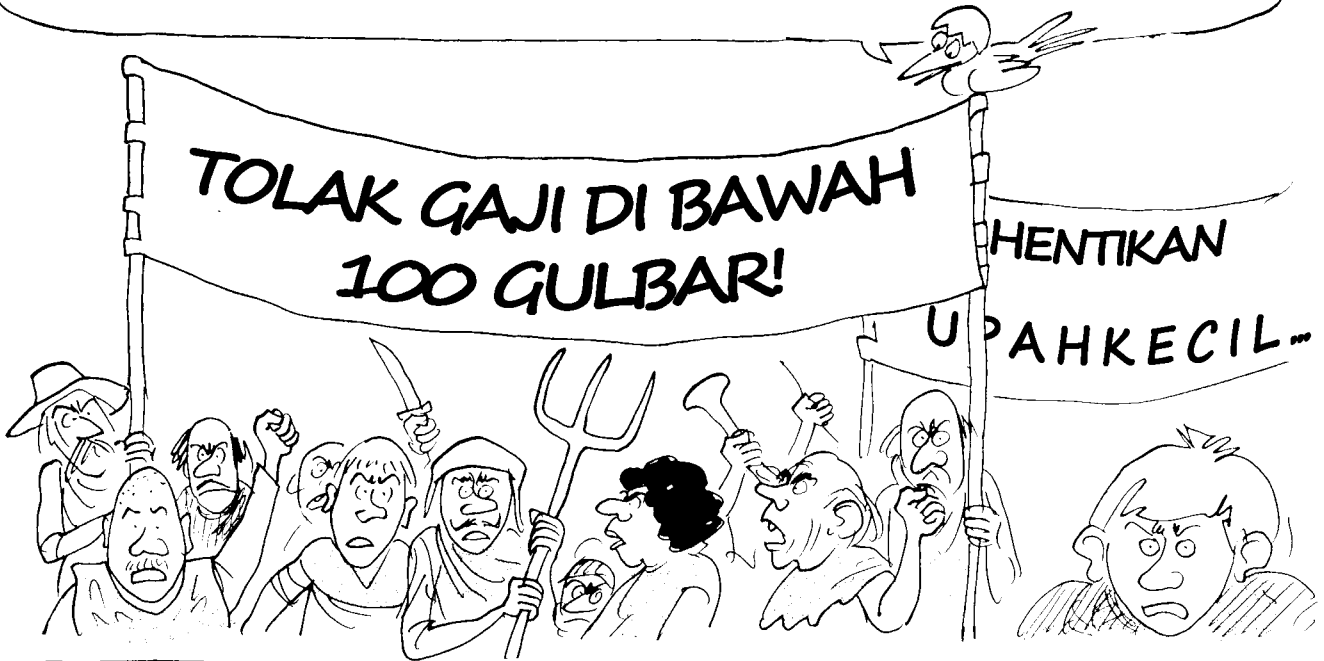 TOLAK GAJI DI BAWAH
100 GULBAR!
HENTIKAN
UPAHKECIL...